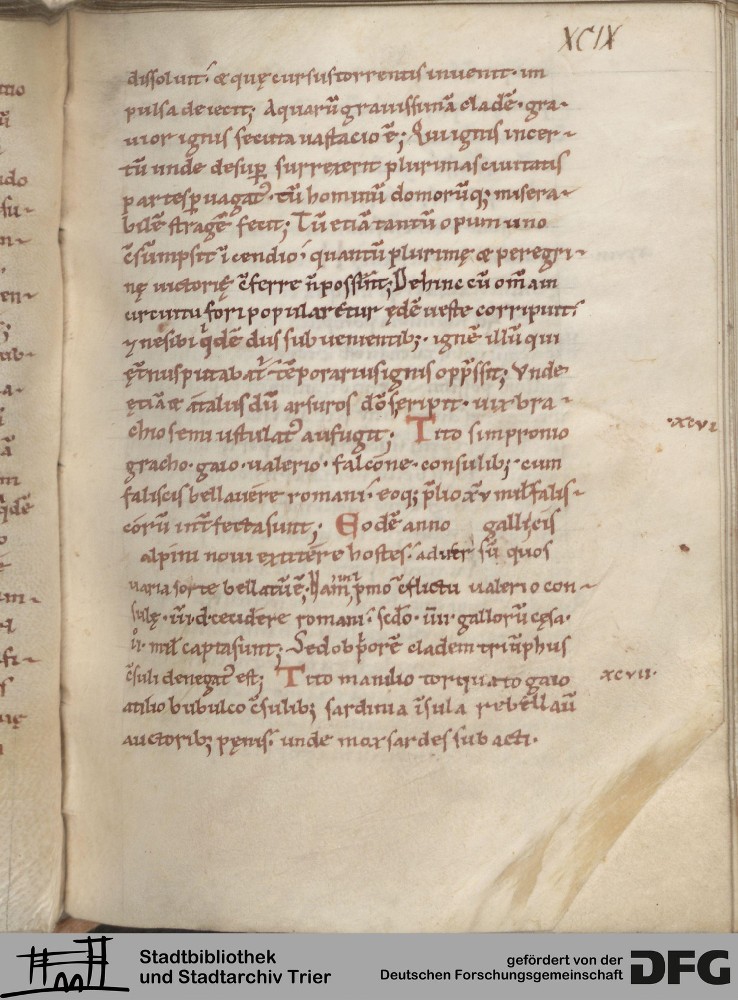 XCIX
dissoluit· & quę cursus torrentis inuenit· im
pulsa deiecit; Aquarū grauissimā cladē· gra-
uior ignis secuta uastacio ē; Qui ignis incer-
tū unde desup̱ surrexerit plurimas ciuitatis
partes p̱uagat᷒· tū hominū domorūq; misera-
bilē stragē fecit; Tū etiā tantū opum uno
c̄sūmpsit īcendio· quantū plurimę & peregri-
nę uictorię c̄ferre n̄ possint; Dehinc cū om̄ia
circuitu fori popularetur ędē ueste corripuit
& ne sibi qͥdē dus subuenientib; ignē illū qui
ęt̄nus putabat᷒· tēporarius ignis opp̄ssit; Unde
ętiā & &alus dū arsuros dō seripit· uix bra-
chio semiustulat᷒ aufugit; Tito simpronio
xcvi
gracho· gaio· ualerio· falcone· consulib; cum
faliscis bellauere romani· eoq; p̄lio xv mil̄ falis-
corū int̄fecta sunt; Eodē anno gallis cis
alpini noui extitere hostes· aduersū quos
uaria sorte bellatū ē; Nam in pͥmo c̄flictu ualerio con-
sulę· ııı·d· cecidere romani· scd̄o· ıııı· gallorū cęsa·
ıı· mil̄ capta sunt; Sed ob pͥorē cladem triūphus
c̄suli denegat᷒ est; Tito manilio torquato gaio
xcvii·
atilio bubulco c̄sulib; sardinia īsula rebellau̅
auctorib; pęnis· unde mox sardes subacti·
Stadtbibliothek
und Stadtarchiv Trier
gefördert von der
Deutschen Forschungsgemeinschaft
DFG